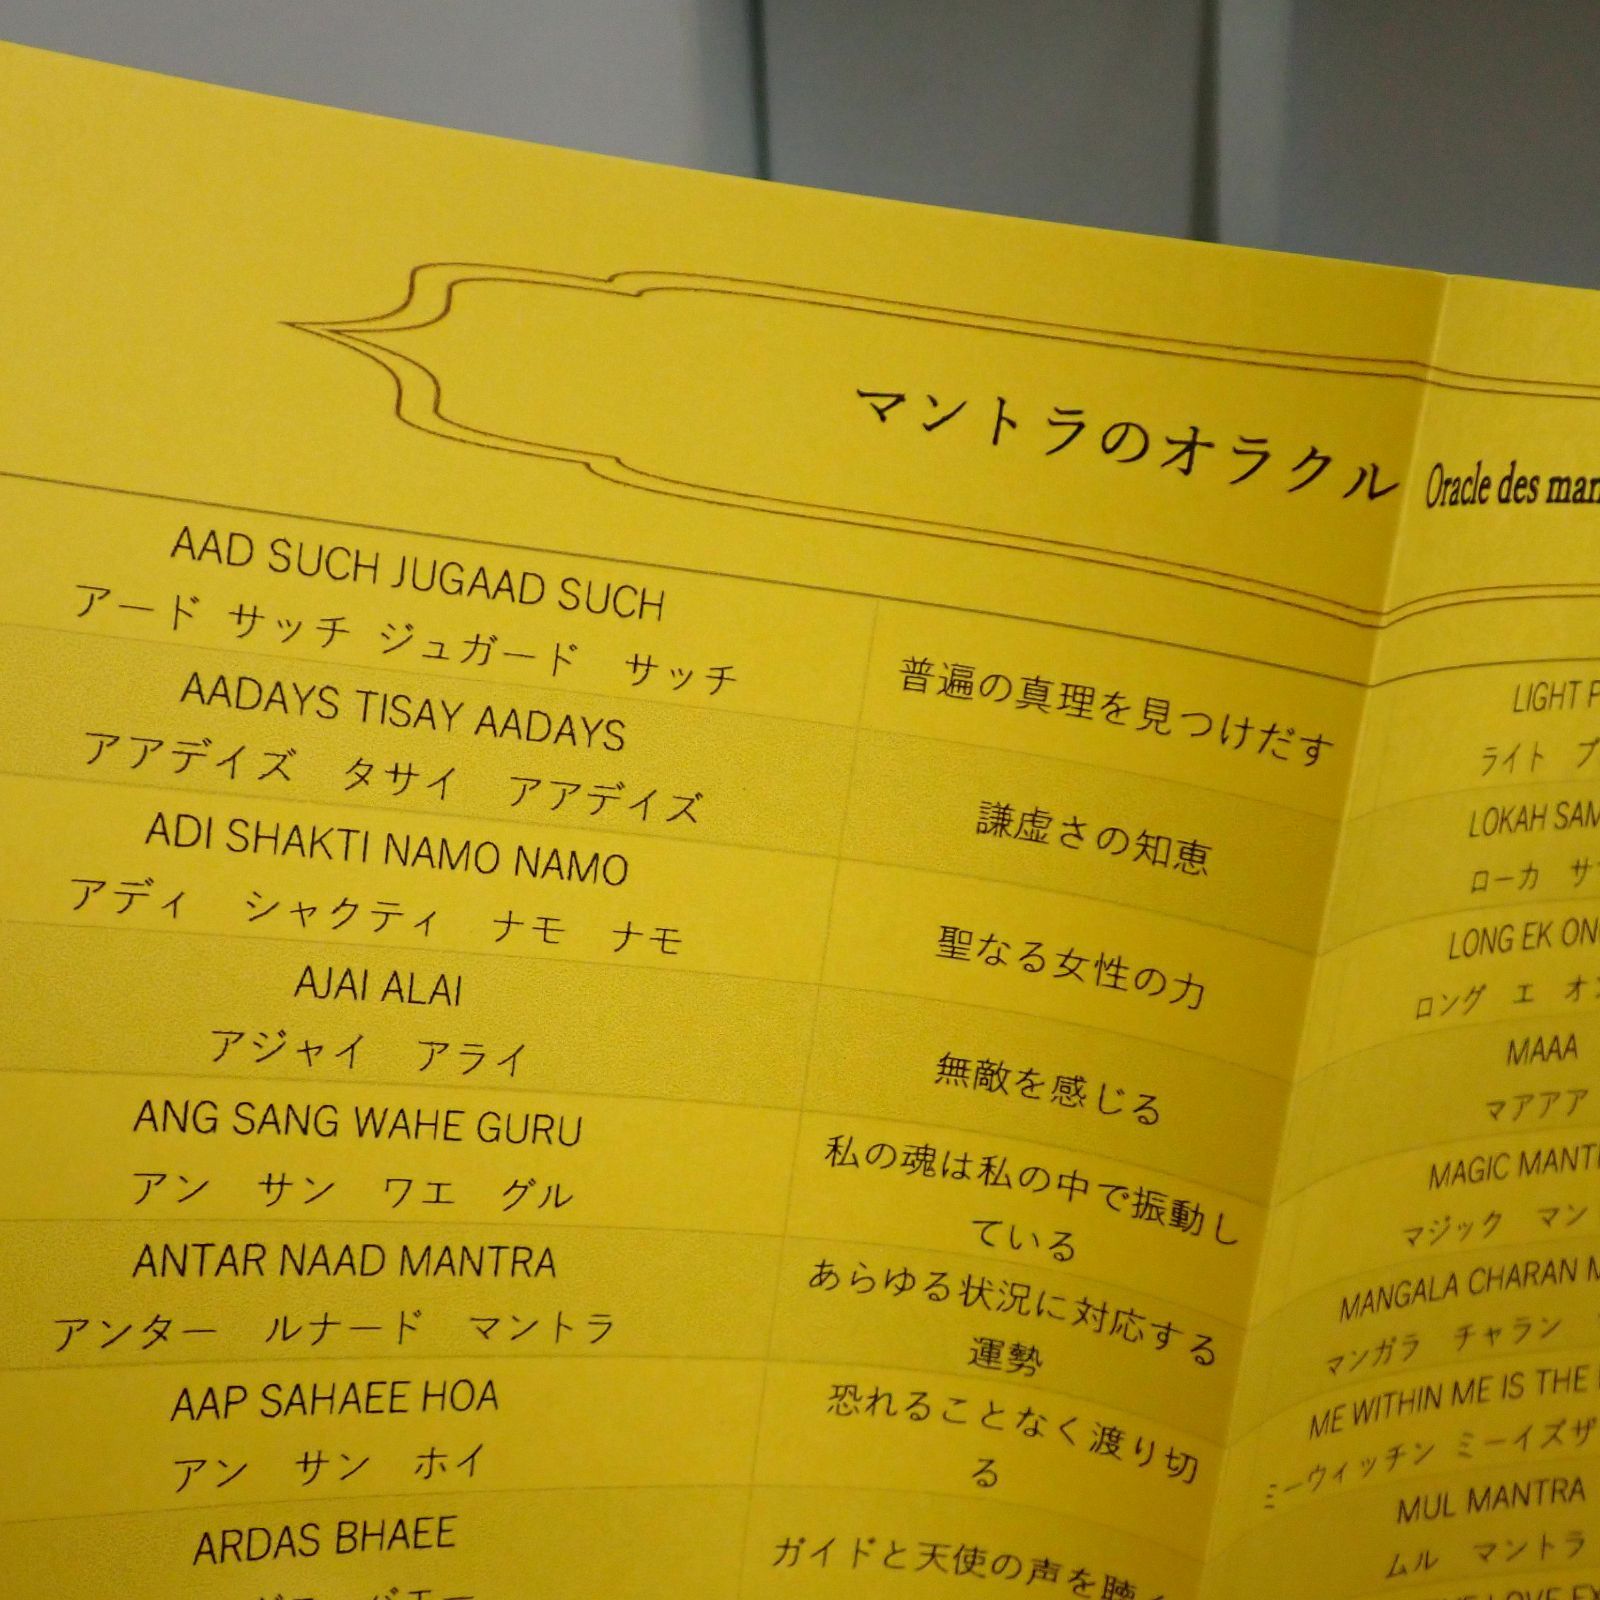 マントラのオラクル Oracle des
AAD SUCH JUGAAD SUCH
アード サッチ ジュガード サッチ
普遍の真理を見つけだす
AADAYS TISAY AADAYS
アアデイズ タサイ アアデイズ
謙虚さの知恵
ADI SHAKTI NAMO NAMO
アディ シャクティ ナモ ナモ
聖なる女性の力
AJAI ALAI
アジャイ アライ
無敵を感じる
ANG SANG WAHE GURU
アン サン ワエ グル
私の魂は私の中で振動し
ている
ANTAR NAAD MANTRA
アンター ルナード マントラ
あらゆる状況に対応する
運勢
AAP SAHAEE HOA
アン サン ホイ
恐れることなく渡り切
る
ARDAS BHAEE
ガイドと天使の声を聴
LIGHT
ライト
LOKAH
ローカ
LONG EK
ロング エ
MAAA
マアアア
MAGIC
マジック マン
MANGALA CHARAN
マンガラ チャラン
ME WITHIN ME IS THE
ミーウィッチン ミーイズザ
MUL MANTRA
ムル マントラ